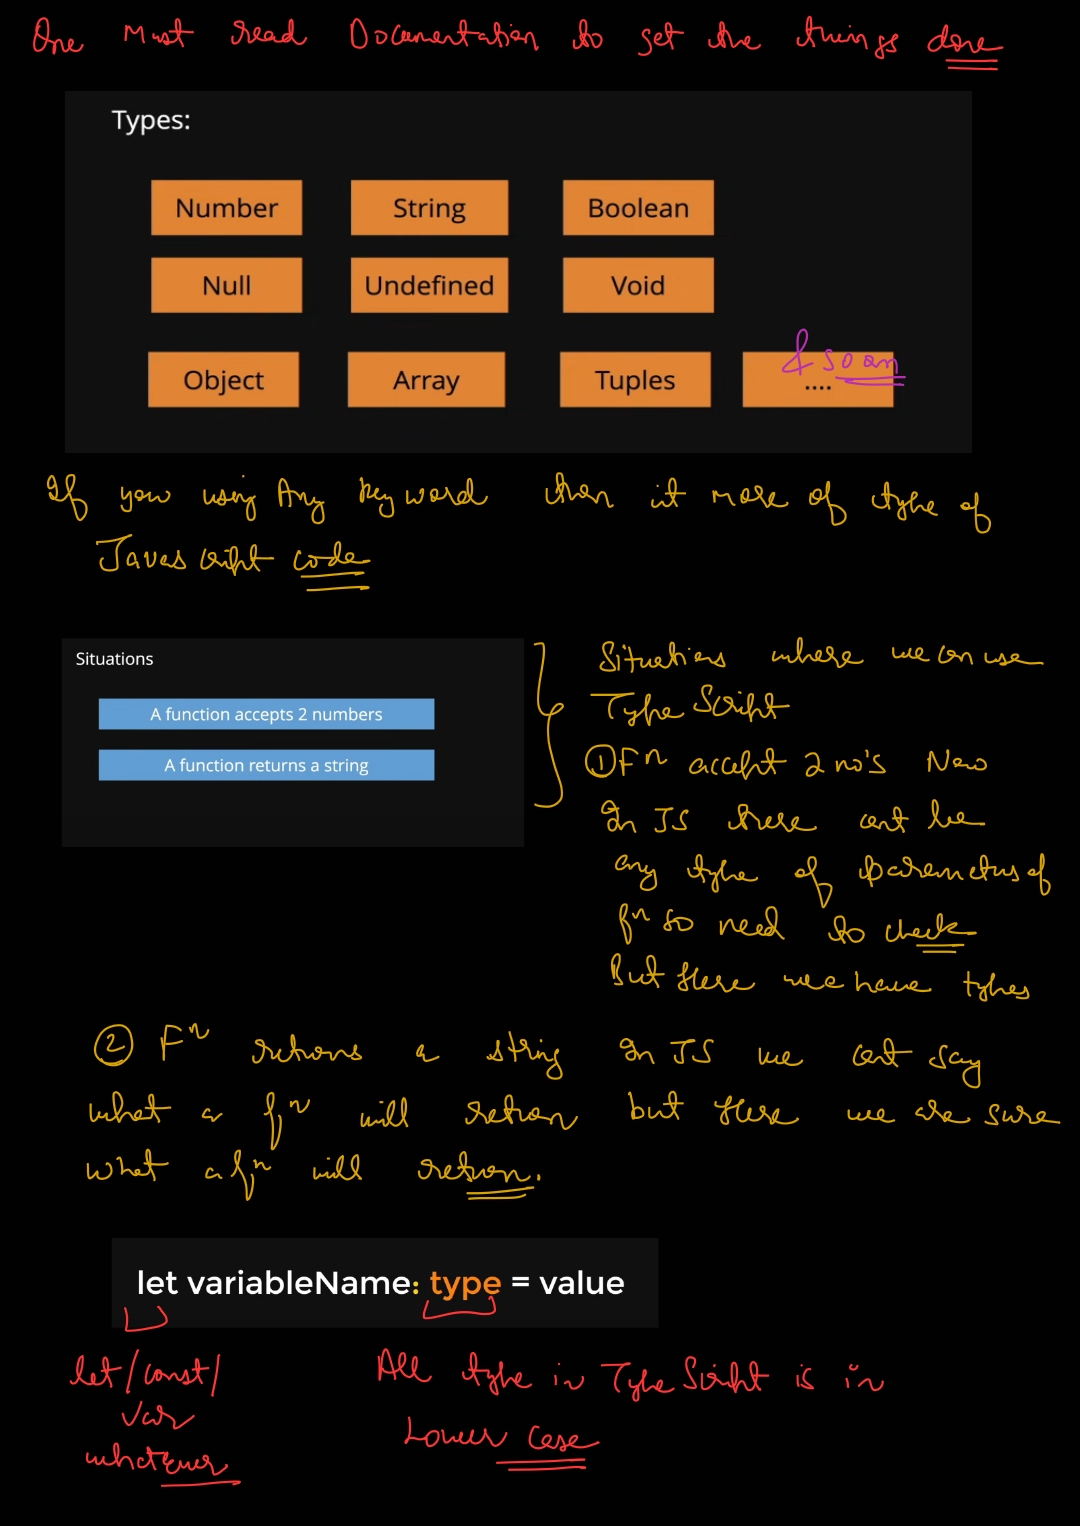 One Must read Documentation to get the things done
Types:
Number String Boolean
Null Undefined Void
& so on
Object Array Tuples ....
If you using Any keyword then it more of type of
Javascript code
Situations
A function accepts 2 numbers
A function returns a string
Situations where we can use
TypeScript
① Fⁿ accept 2 no's Now
In JS there cant be
any type of parameters of
fⁿ so need to check
But Here we have types
② Fⁿ returns a string In JS we cant say
what a fⁿ will return but Here we are sure
what a fⁿ will return.
let variableName: type = value
let/const/
var
whatever
All type in TypeScript is in
Lower Case